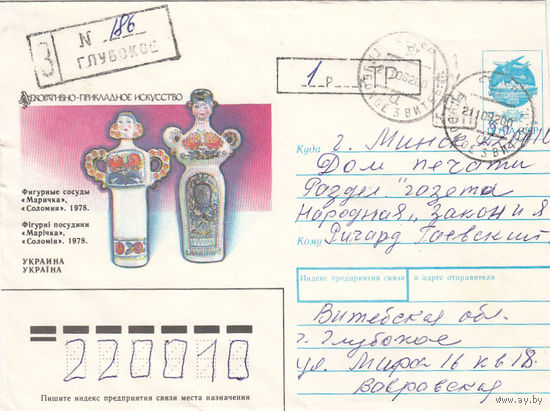 З
N 186
ГЛУБОКОЕ
1 Р
ДЕКОРАТИВНО-ПРИКЛАДНОЕ ИСКУССТВО
ПОЧТА СССР
Фигурные сосуды
«Маричка»,
«Соломия». 1978.
Фігурні посудини
«Марічка»,
«Соломія». 1978.
УКРАИНА
УКРАЇНА
Куда
г. Минск
Дом печати
Раздел "газета
Народная" Закон и Я
Кому Ричард Гаевский
Индекс предприятия связи и адрес отправителя
Витебская обл.
г. Глубокое
ул. Мира 16 кв 18
Вавравская
220010
Пишите индекс предприятия связи места назначения
www.ay.by